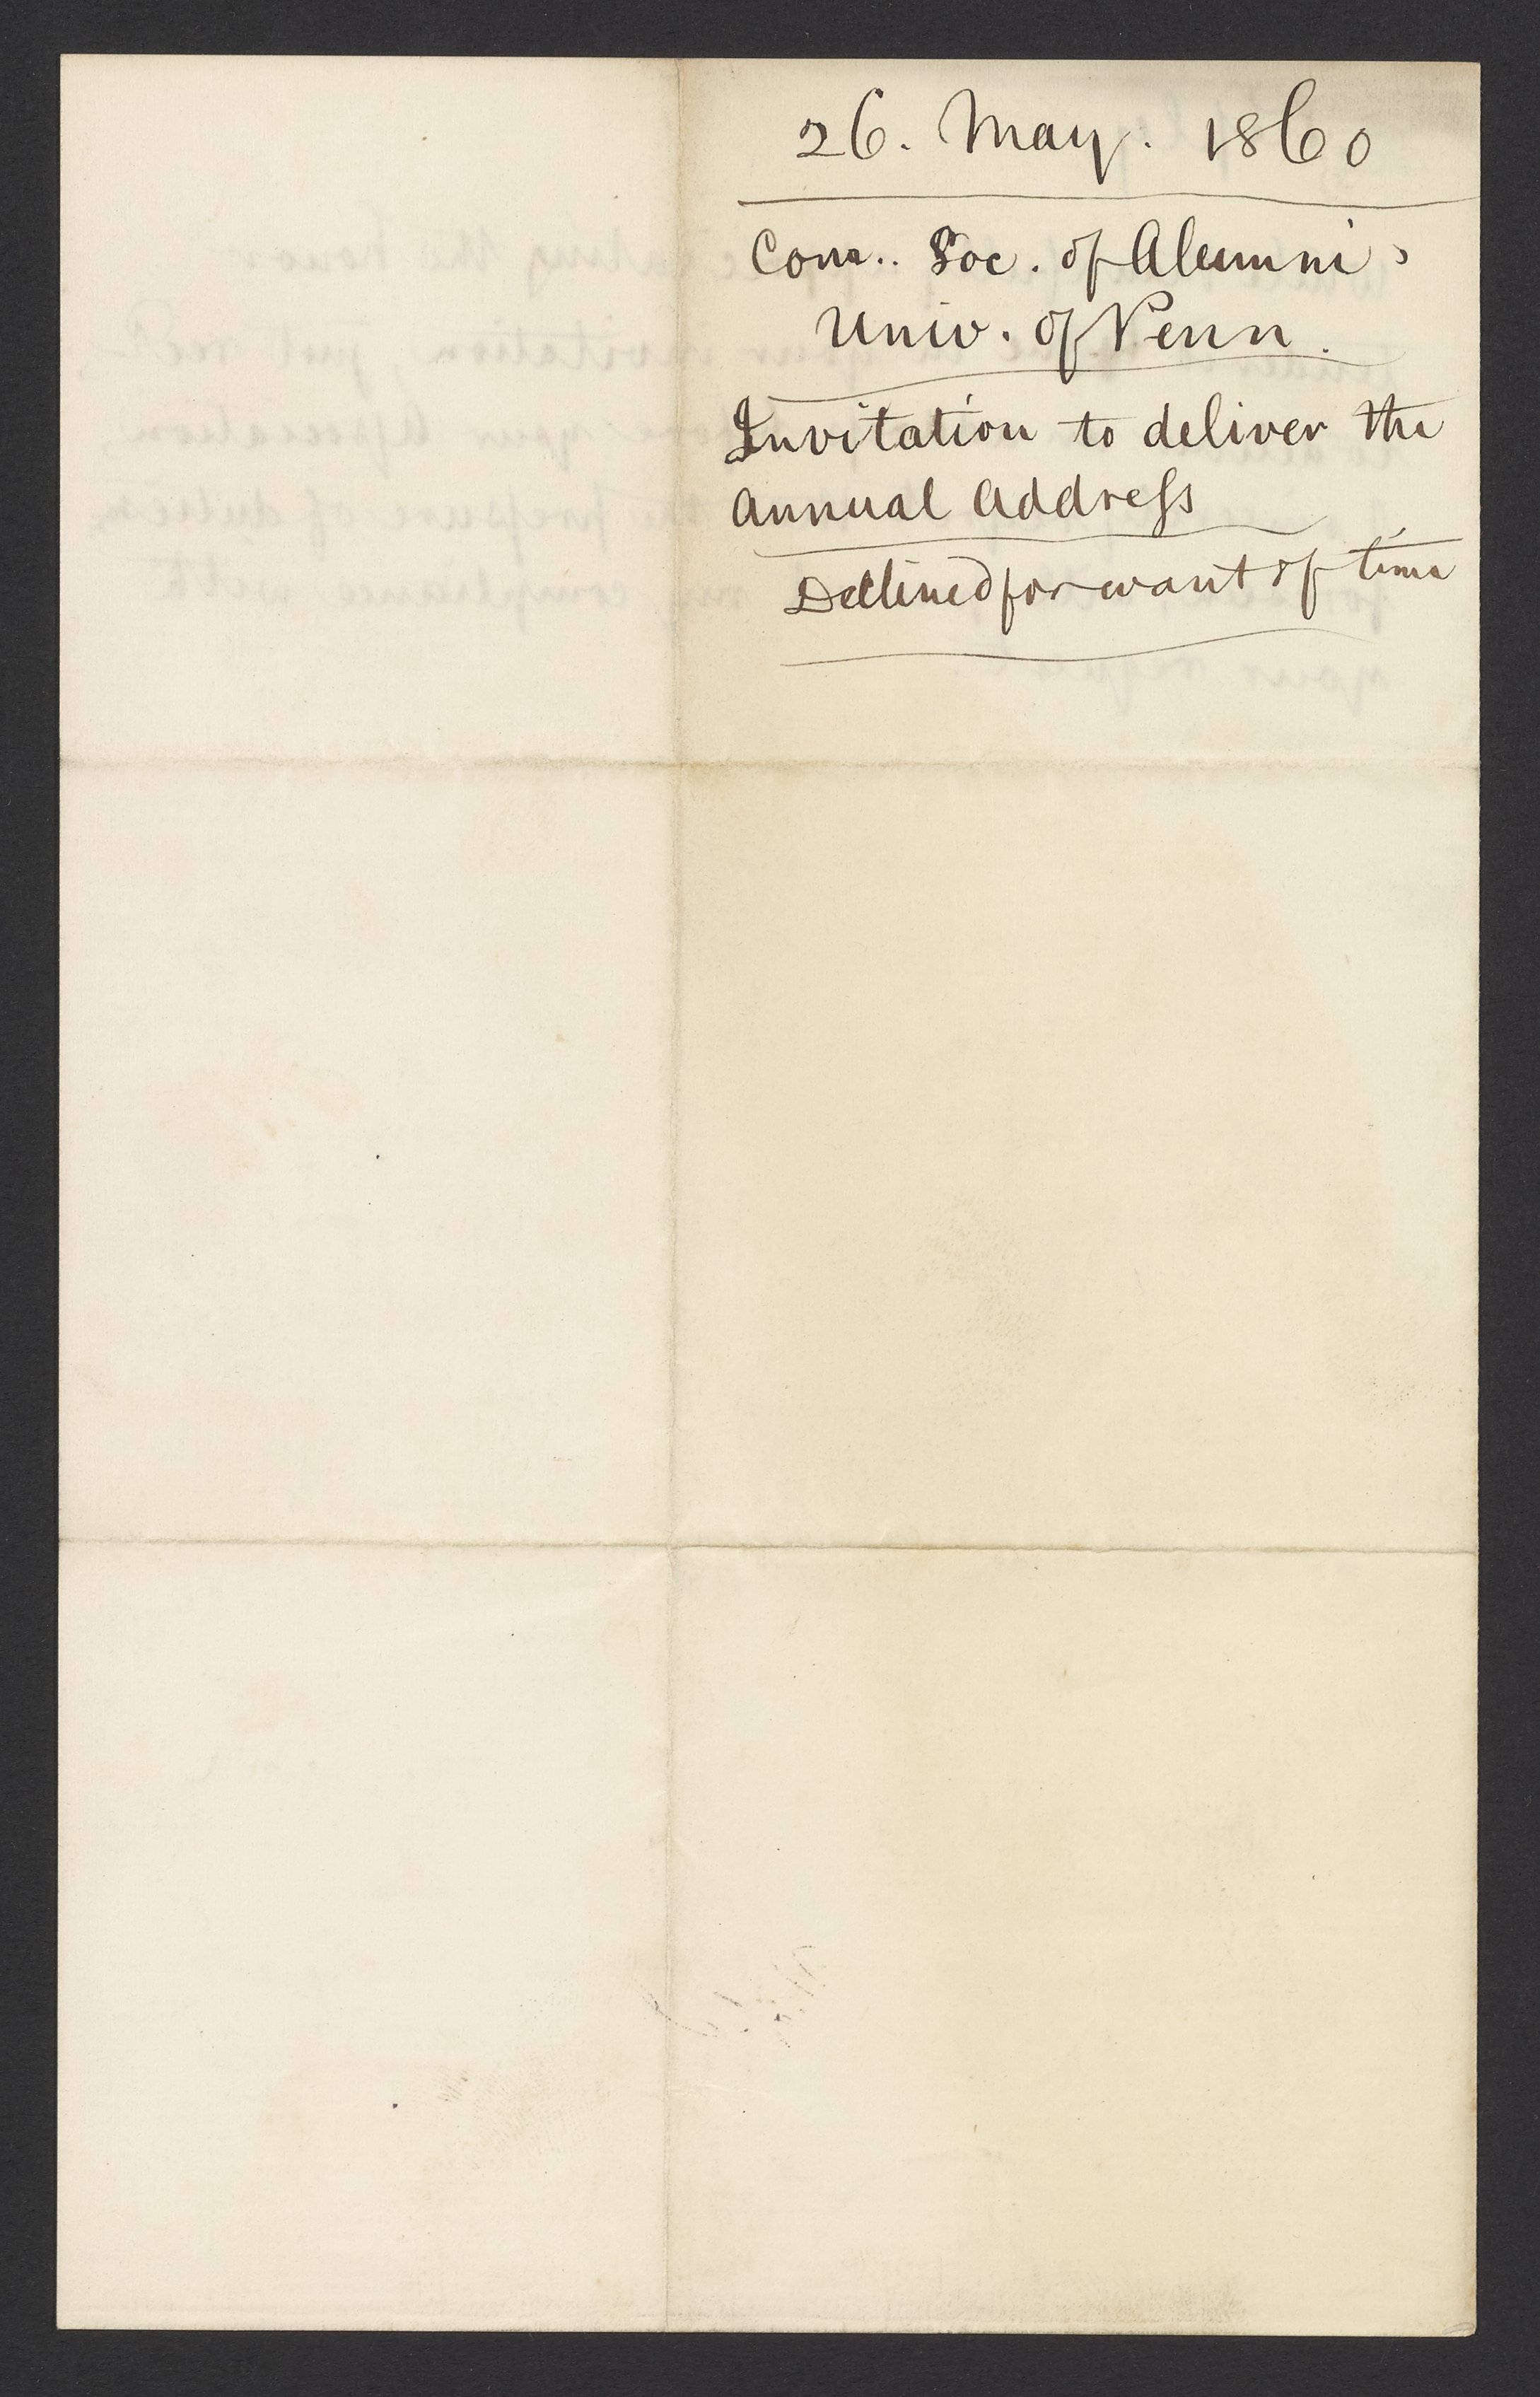 26. May. 1860
Com.. Soc. of Alumni,
Univ. of Penn.
Invitation to deliver the
Annual Address
Declined for want of time